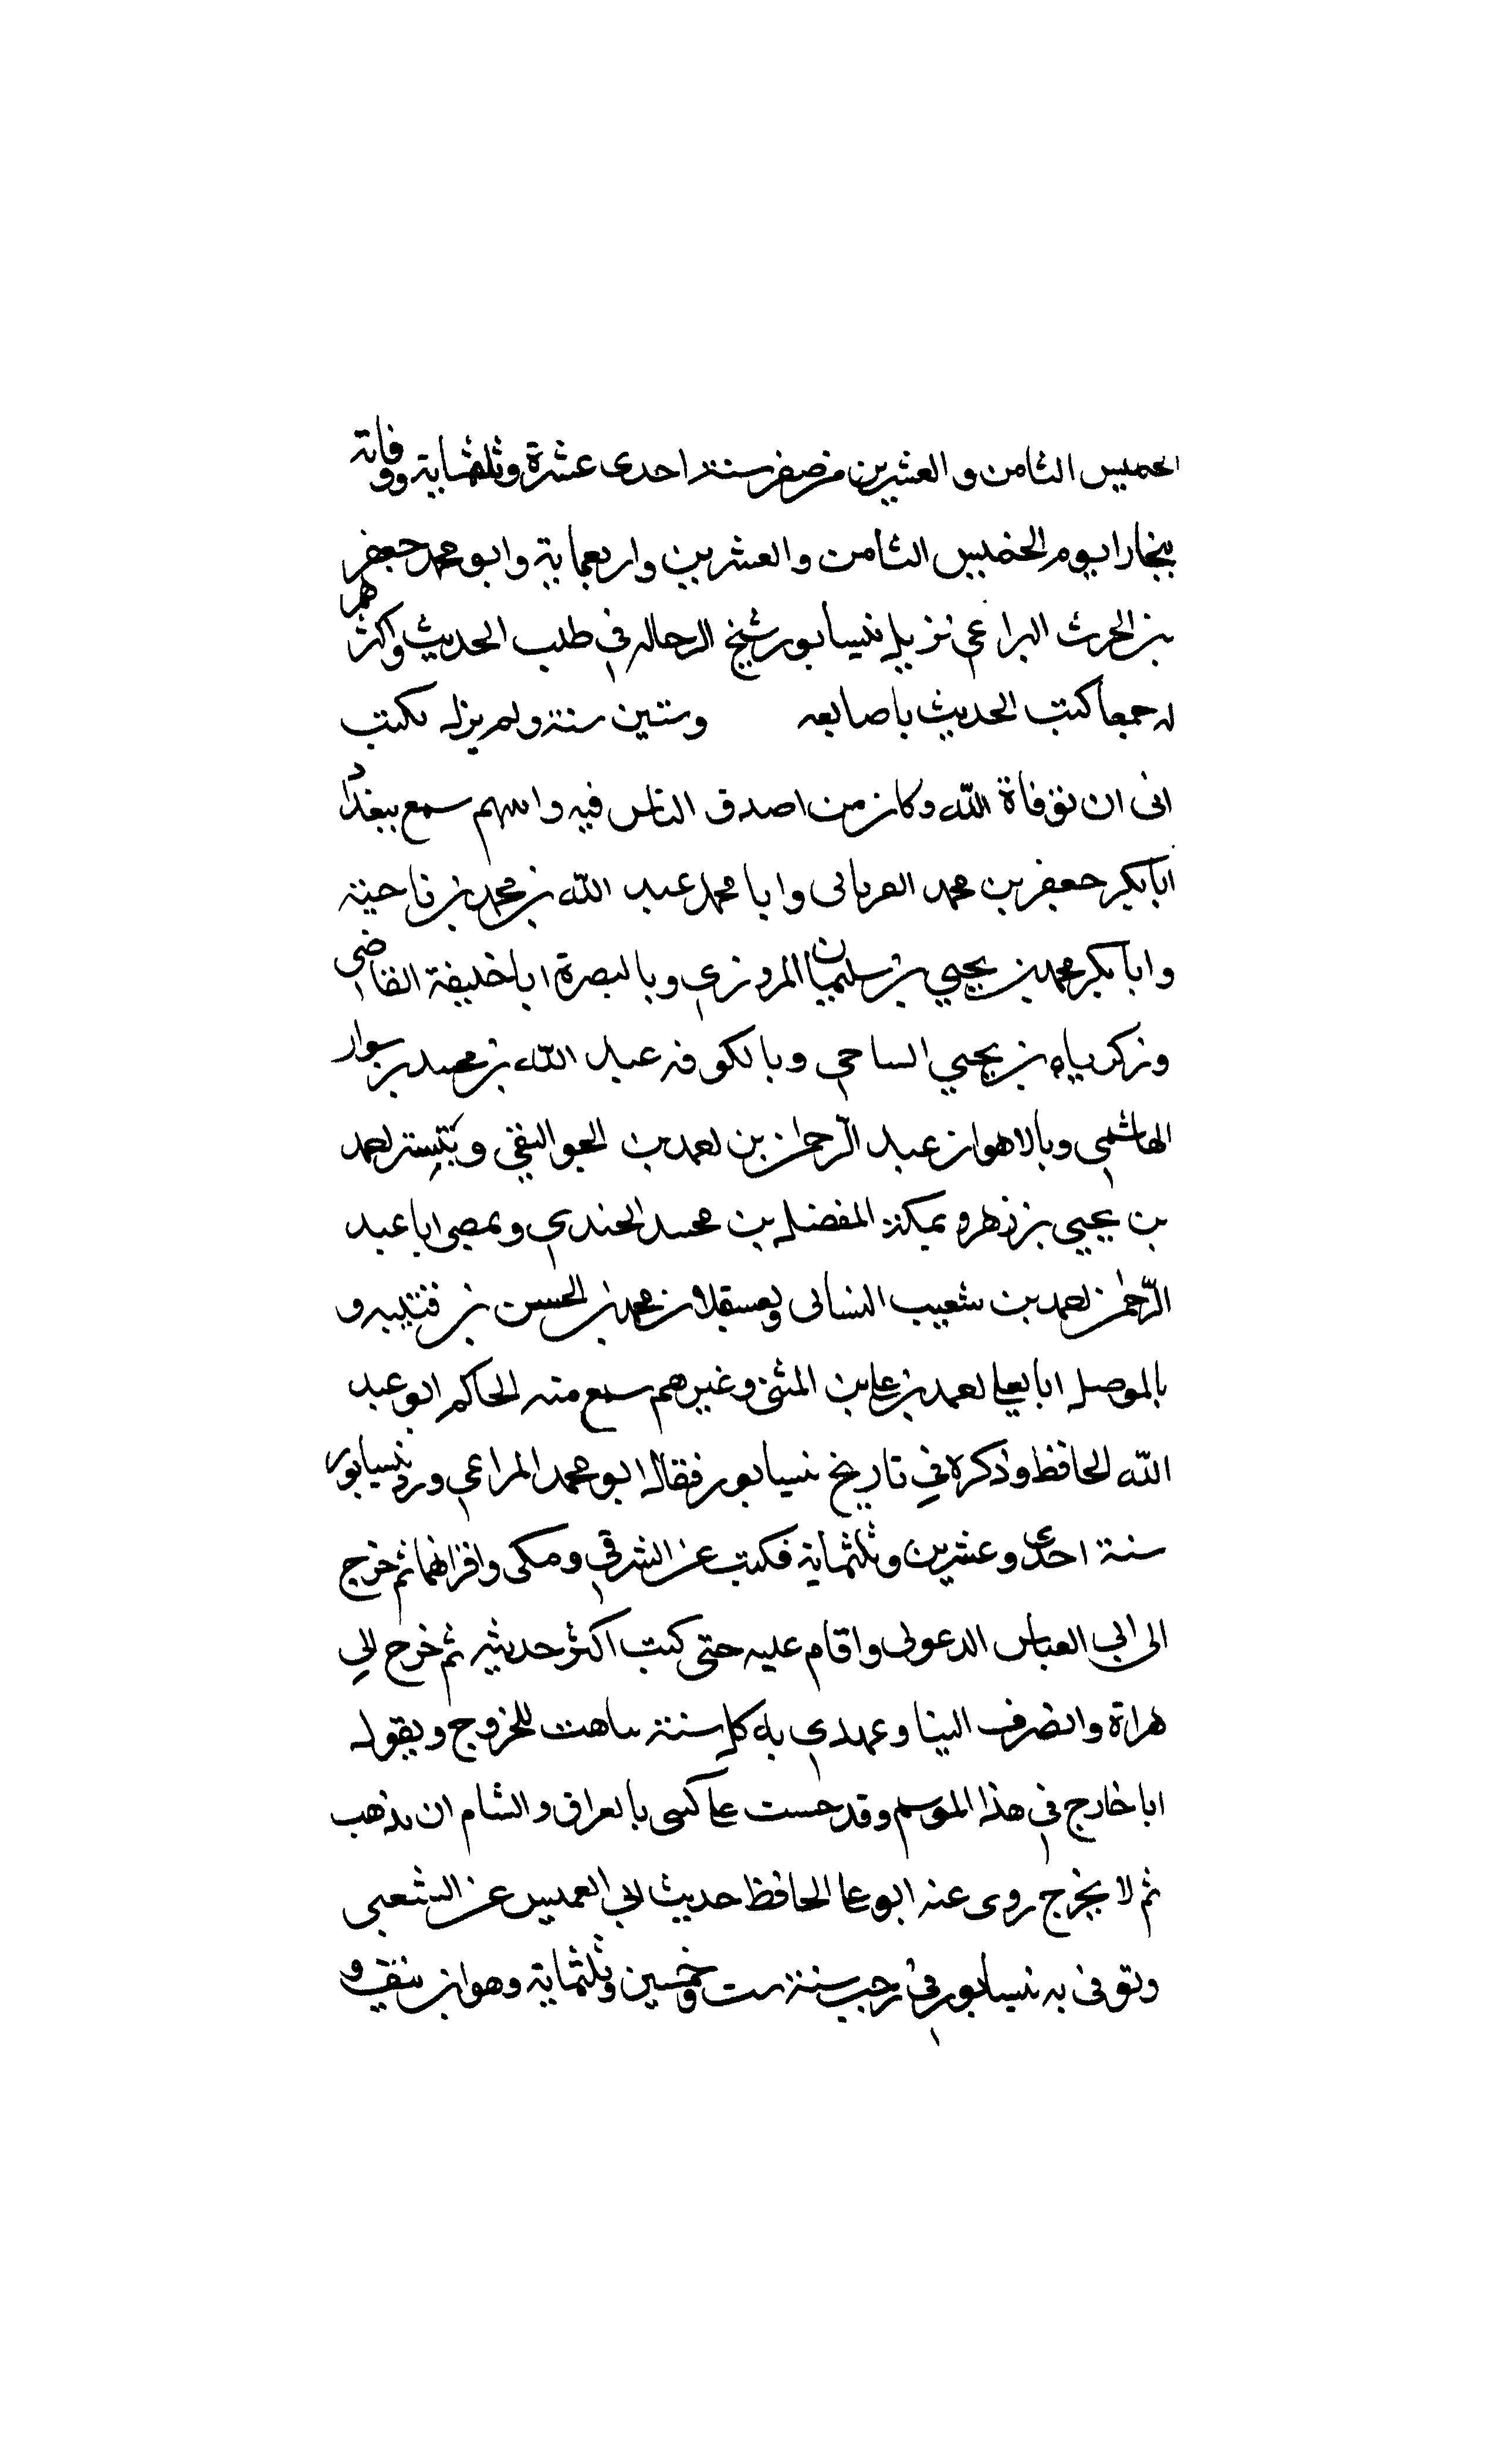 الخميس الثامن والعشرين من صفر سنة احدى عشرة وثلثماية ووفاته
ببخارا يوم الخميس الثامن والعشرين واربعماية وابو محمد جعفر
بن الحرث المراغي نزيل نيسابور شيخ الرحاله في طلب الحديث واكثرهم
له جمعا كتب الحديث باصابعه وستين سنة ولم يزل يكتب
الى ان توفاة الله وكان من اصدق الناس فيه سمع ببغداد
ابا بكر جعفر بن محمد الفريابى وابا محمد عبد الله بن محمد بن ناحية
وابا بكر محمد بن يحيي بن سليمان المروزي وبالبصرة ابا خليفة القاضي
وزكرياه بن يحيي الساجي وبالكوفه عبد الله بن محمد بن سوار
الهاشمي وبالاهواز عبد الرحمن بن احمد بن وبتستر احمد
بن يحيي بن زهر وبمكة المفضل بن محمد الجندي وبمصر ابا عبد
الرحمن احمد بن شعيب النسائى وبعسقلان محمد بن الحسن بن قتيبه و
بالموصل ابا يعلي احمد بن علي بن المثنى وغيرهم سمع منه الحاكم ابو عبد
الله الحافظ وذكره في تاريخ نيسابور فقال ابو محمد المراغي ورد نيسابور
سنة احدى وعشرين وثلثماية فكتب عن الشرقي ومكى واقرانهما ثم خرج
الى ابي العباس الدغولى واقام عليه حتى كتب اكثر حديثه ثم خرج الي
هراة وانصرف الينا وعهدي به كل سنة يتاهب للخروج ويقول
انا خارج في هذا الموسم وقد خشيت على كتبى بالعراق والشام ان يذهب
ثم لا يخرج روى عنه ابو على الحافظ حديث ابي العميس عن الشعبي
وتوفى به نيسابور في رجب سنة ست وخمسين وثلثماية وهو ابن نيف و